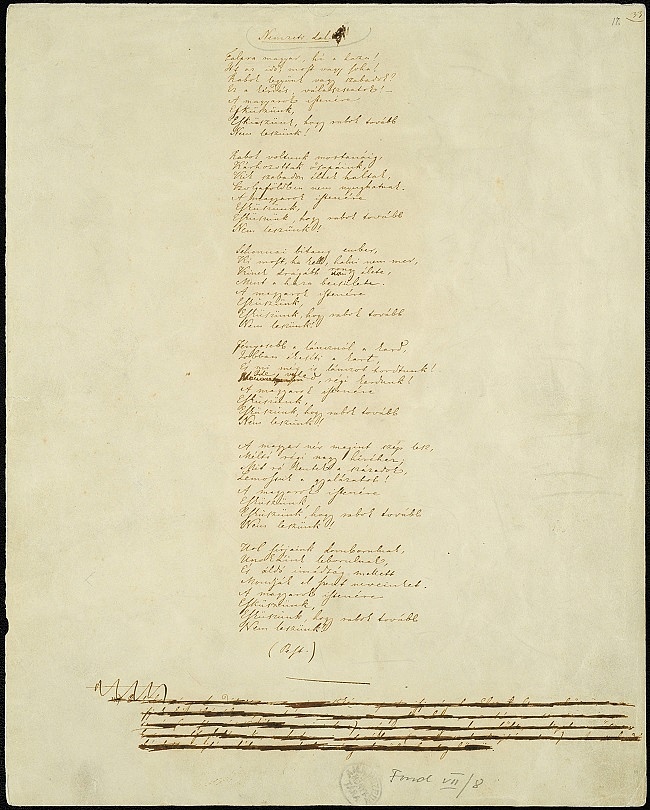 Nemzeti dal.
Talpra magyar, hí a haza!
Itt az idő, most vagy soha!
Rabok legyünk vagy szabadok?
Ez a kérdés, válasszatok! –
A magyarok istenére
Esküszünk,
Esküszünk, hogy rabok tovább
Nem leszünk!
Rabok voltunk mostanáig,
Kárhozottak ősapáink,
Kik szabadon éltek haltak,
Szolgaföldben nem nyughatnak.
A magyarok istenére
Esküszünk,
Esküszünk, hogy rabok tovább
Nem leszünk!
Sehonnai bitang ember,
Ki most, ha kell, halni nem mer,
Kinek drágább rongy élete,
Mint a haza becsülete.
A magyarok istenére
Esküszünk,
Esküszünk, hogy rabok tovább
Nem leszünk!
Fényesebb a láncznál a kard,
Jobban ékesíti a kart,
És mi még is lánczot hordtunk!
Ide veled, régi kardunk!
A magyarok istenére
Esküszünk,
Esküszünk, hogy rabok tovább
Nem leszünk!
A magyar név megint szép lesz,
Méltó régi nagy hiréhez,
Mit rá kentek a századok,
Lemossuk a gyalázatot!
A magyarok istenére
Esküszünk,
Esküszünk, hogy rabok tovább
Nem leszünk!
Hol sírjaink domborulnak,
Unokáink leborulnak,
És áldó imádság mellett
Mondják el szent neveinket.
A magyarok istenére
Esküszünk,
Esküszünk, hogy rabok tovább
Nem leszünk!
(Pest.)
Fond VII/8